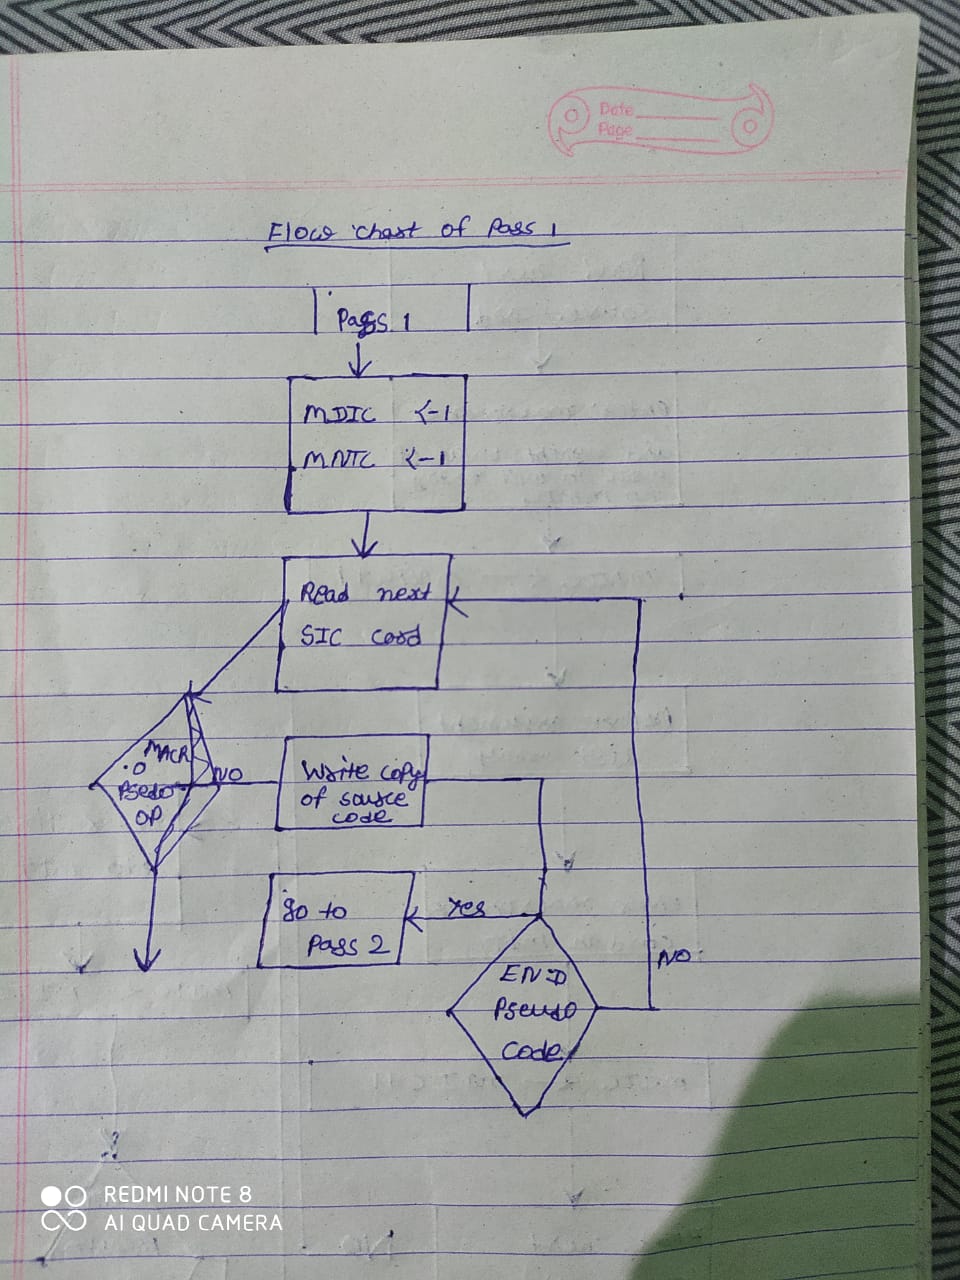 Date
Page
Flow chart of Pass 1
Pass 1
MDIC <-1
MNTC <-1
Read next
SIC card
MACR
O
Psedo
OP
NO
Write copy
of source
code
Yes
go to
Pass 2
NO
END
Pseudo
Code
REDMI NOTE 8
AI QUAD CAMERA